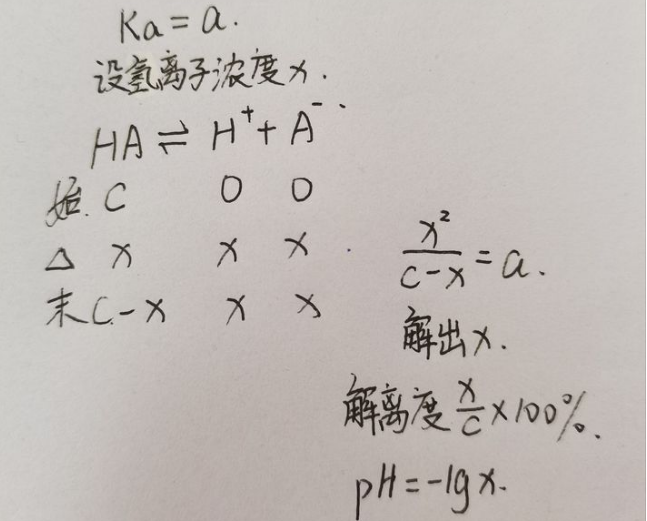 Ka=a.
设氢离子浓度x.
HA⇌H⁺+A⁻.
始. C 0 0
Δ x x x
末 C-x x x
x²/(c-x)=a.
解出x.
解离度 x/c×100%.
pH=-lgx.